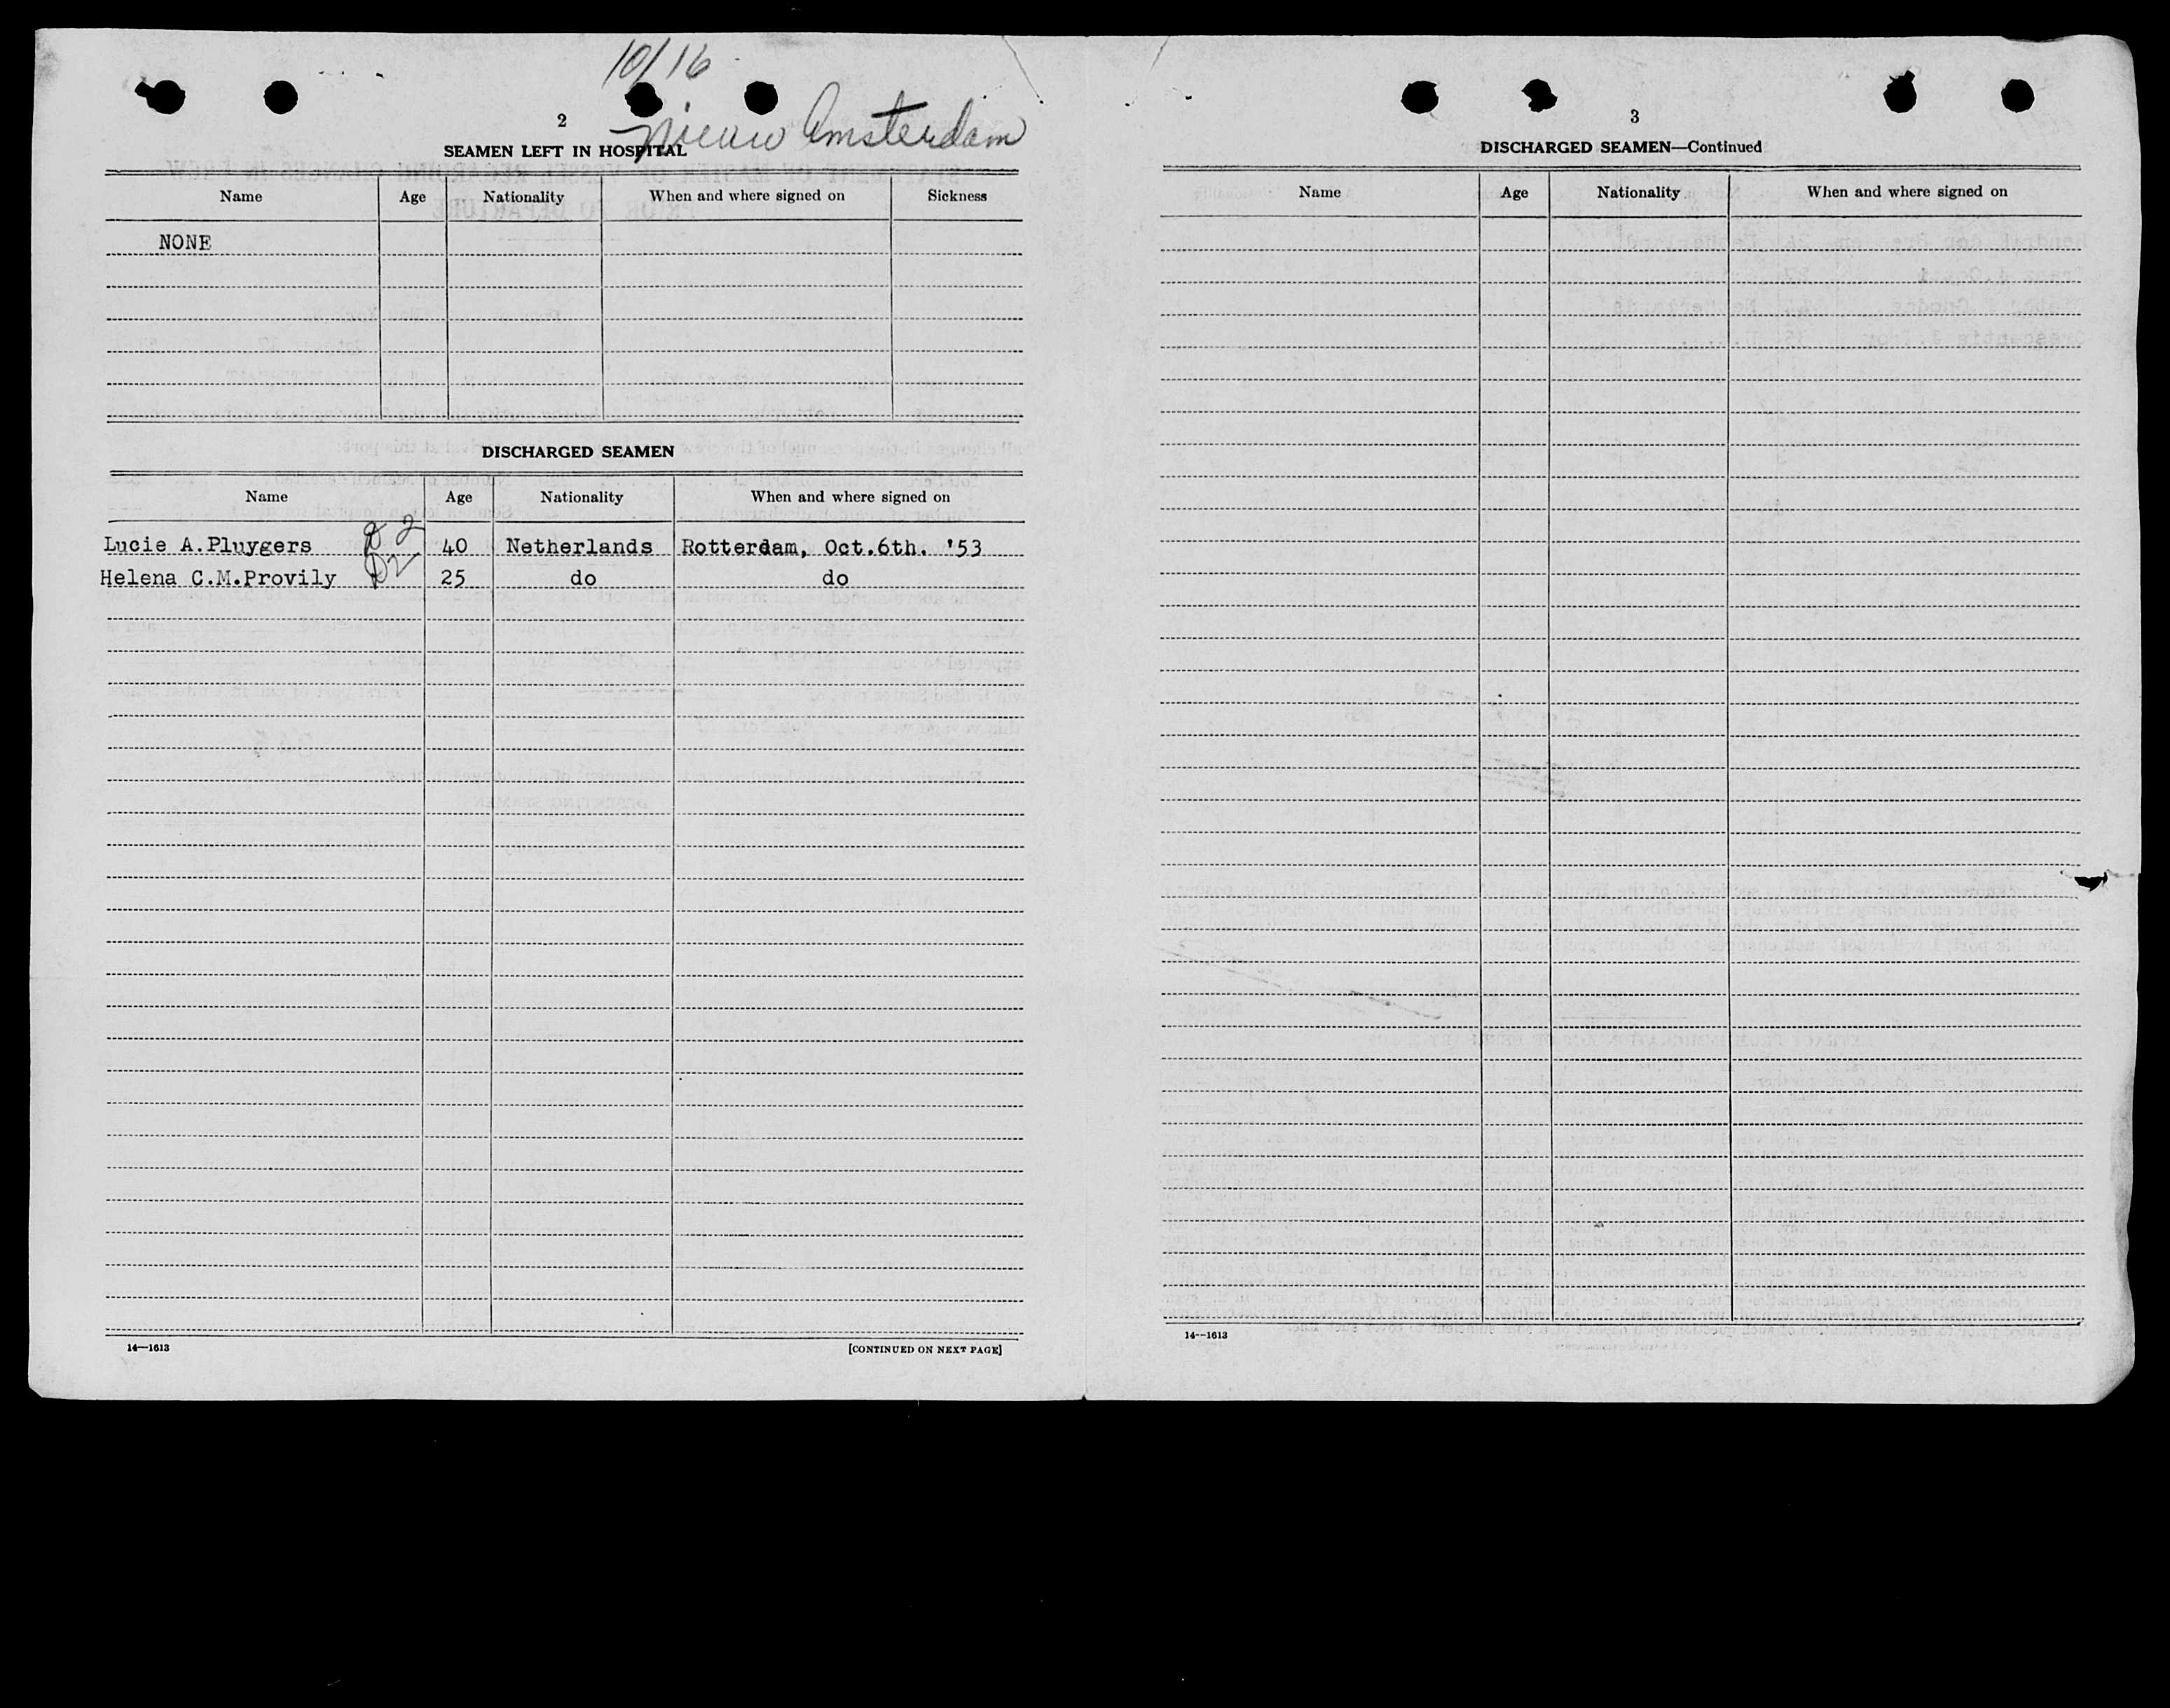 10/16
Nieuw Amsterdam
2
SEAMEN LEFT IN HOSPITAL
Name Age Nationality When and where signed on Sickness
NONE
DISCHARGED SEAMEN
Name Age Nationality When and where signed on
Lucie A.Pluygers D2 40 Netherlands Rotterdam, Oct.6th. '53
Helena C.M.Provily D2 25 do do
14—1613 [CONTINUED ON NEXT PAGE]
3
DISCHARGED SEAMEN—Continued
Name Age Nationality When and where signed on
14—1613